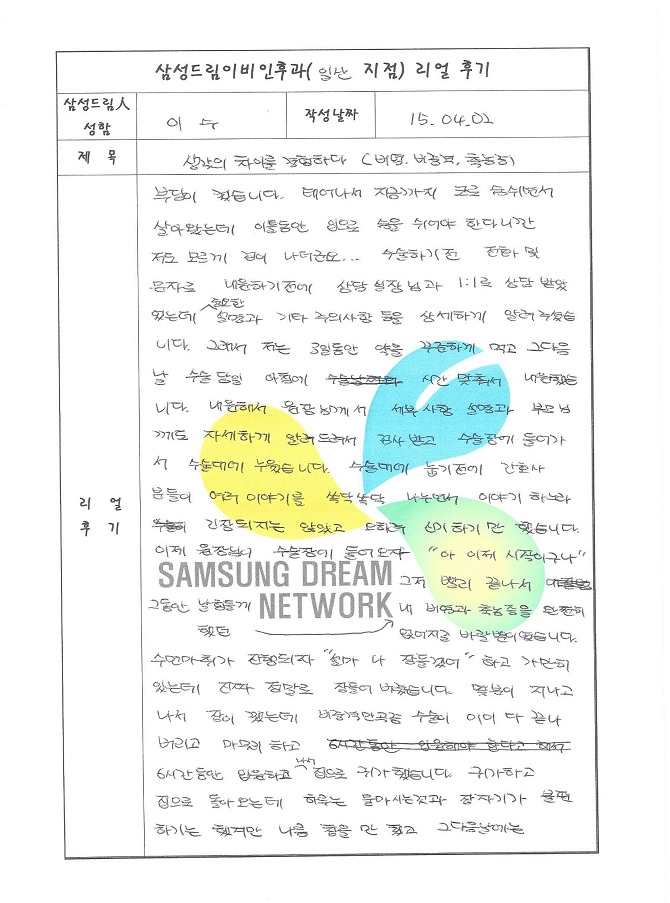 삼성드림이비인후과( 일산 지점) 리얼 후기
삼성드림人
성함
이 수
작성날짜
15. 04. 02
제 목
생각의 차이를 경험하다 (비염, 비중격, 축농증)
리 얼
후 기
부담이 컸습니다. 태어나서 지금까지 코로 숨쉬면서
살아왔는데 이틀동안 입으로 숨을 쉬어야 한다니깐
저도 모르게 겁이 나더군요... 수술하기 전 전화 및
문자로 내원하기전에 상담실장님과 1:1로 상담 받았
었는데 필요한 설명과 기타 주의사항 등을 상세하게 알려주셨습
니다. 그래서 저는 3일동안 약을 꾸준하게 먹고 그다음
날 수술 당일 아침에 시간 맞춰서 내원했습
니다. 내원해서 원장님께서 세부사항 설명과 부모님
께도 자세하게 알려드려서 검사 받고 수술장에 들어가
서 수술대에 누웠습니다. 수술대에 눕기전에 간호사
분들이 여러 이야기를 쑥덕쑥덕 나누면서 이야기 하느라
긴장되지는 않았고 오히려 신기하기만 했습니다.
이제 원장님이 수술장에 들어오자 "아 이제 시작이구나"
SAMSUNG DREAM
NETWORK
그저 빨리 끝나서
그동안 날 힘들게 했던
내 비염과 축농증을 완전히
없어지길 바랄뿐이었습니다.
수면마취가 진행되자 "설마 나 잠들겠어" 하고 가만히
있는데 진짜 정말로 잠들어 버렸습니다. 몇분이 지나고
나서 잠이 깼는데 비중격만곡증 수술이 이미 다 끝나
버리고 마무리 하고 6시간동안 입원해야 한다고 해서
6시간동안 입원하고 나서 집으로 귀가했습니다. 귀가하고
집으로 돌아오는데 하루는 물마시는것과 잠자기가 불편
하기는 했지만 나름 힘을 안 줬고 그다음날에는